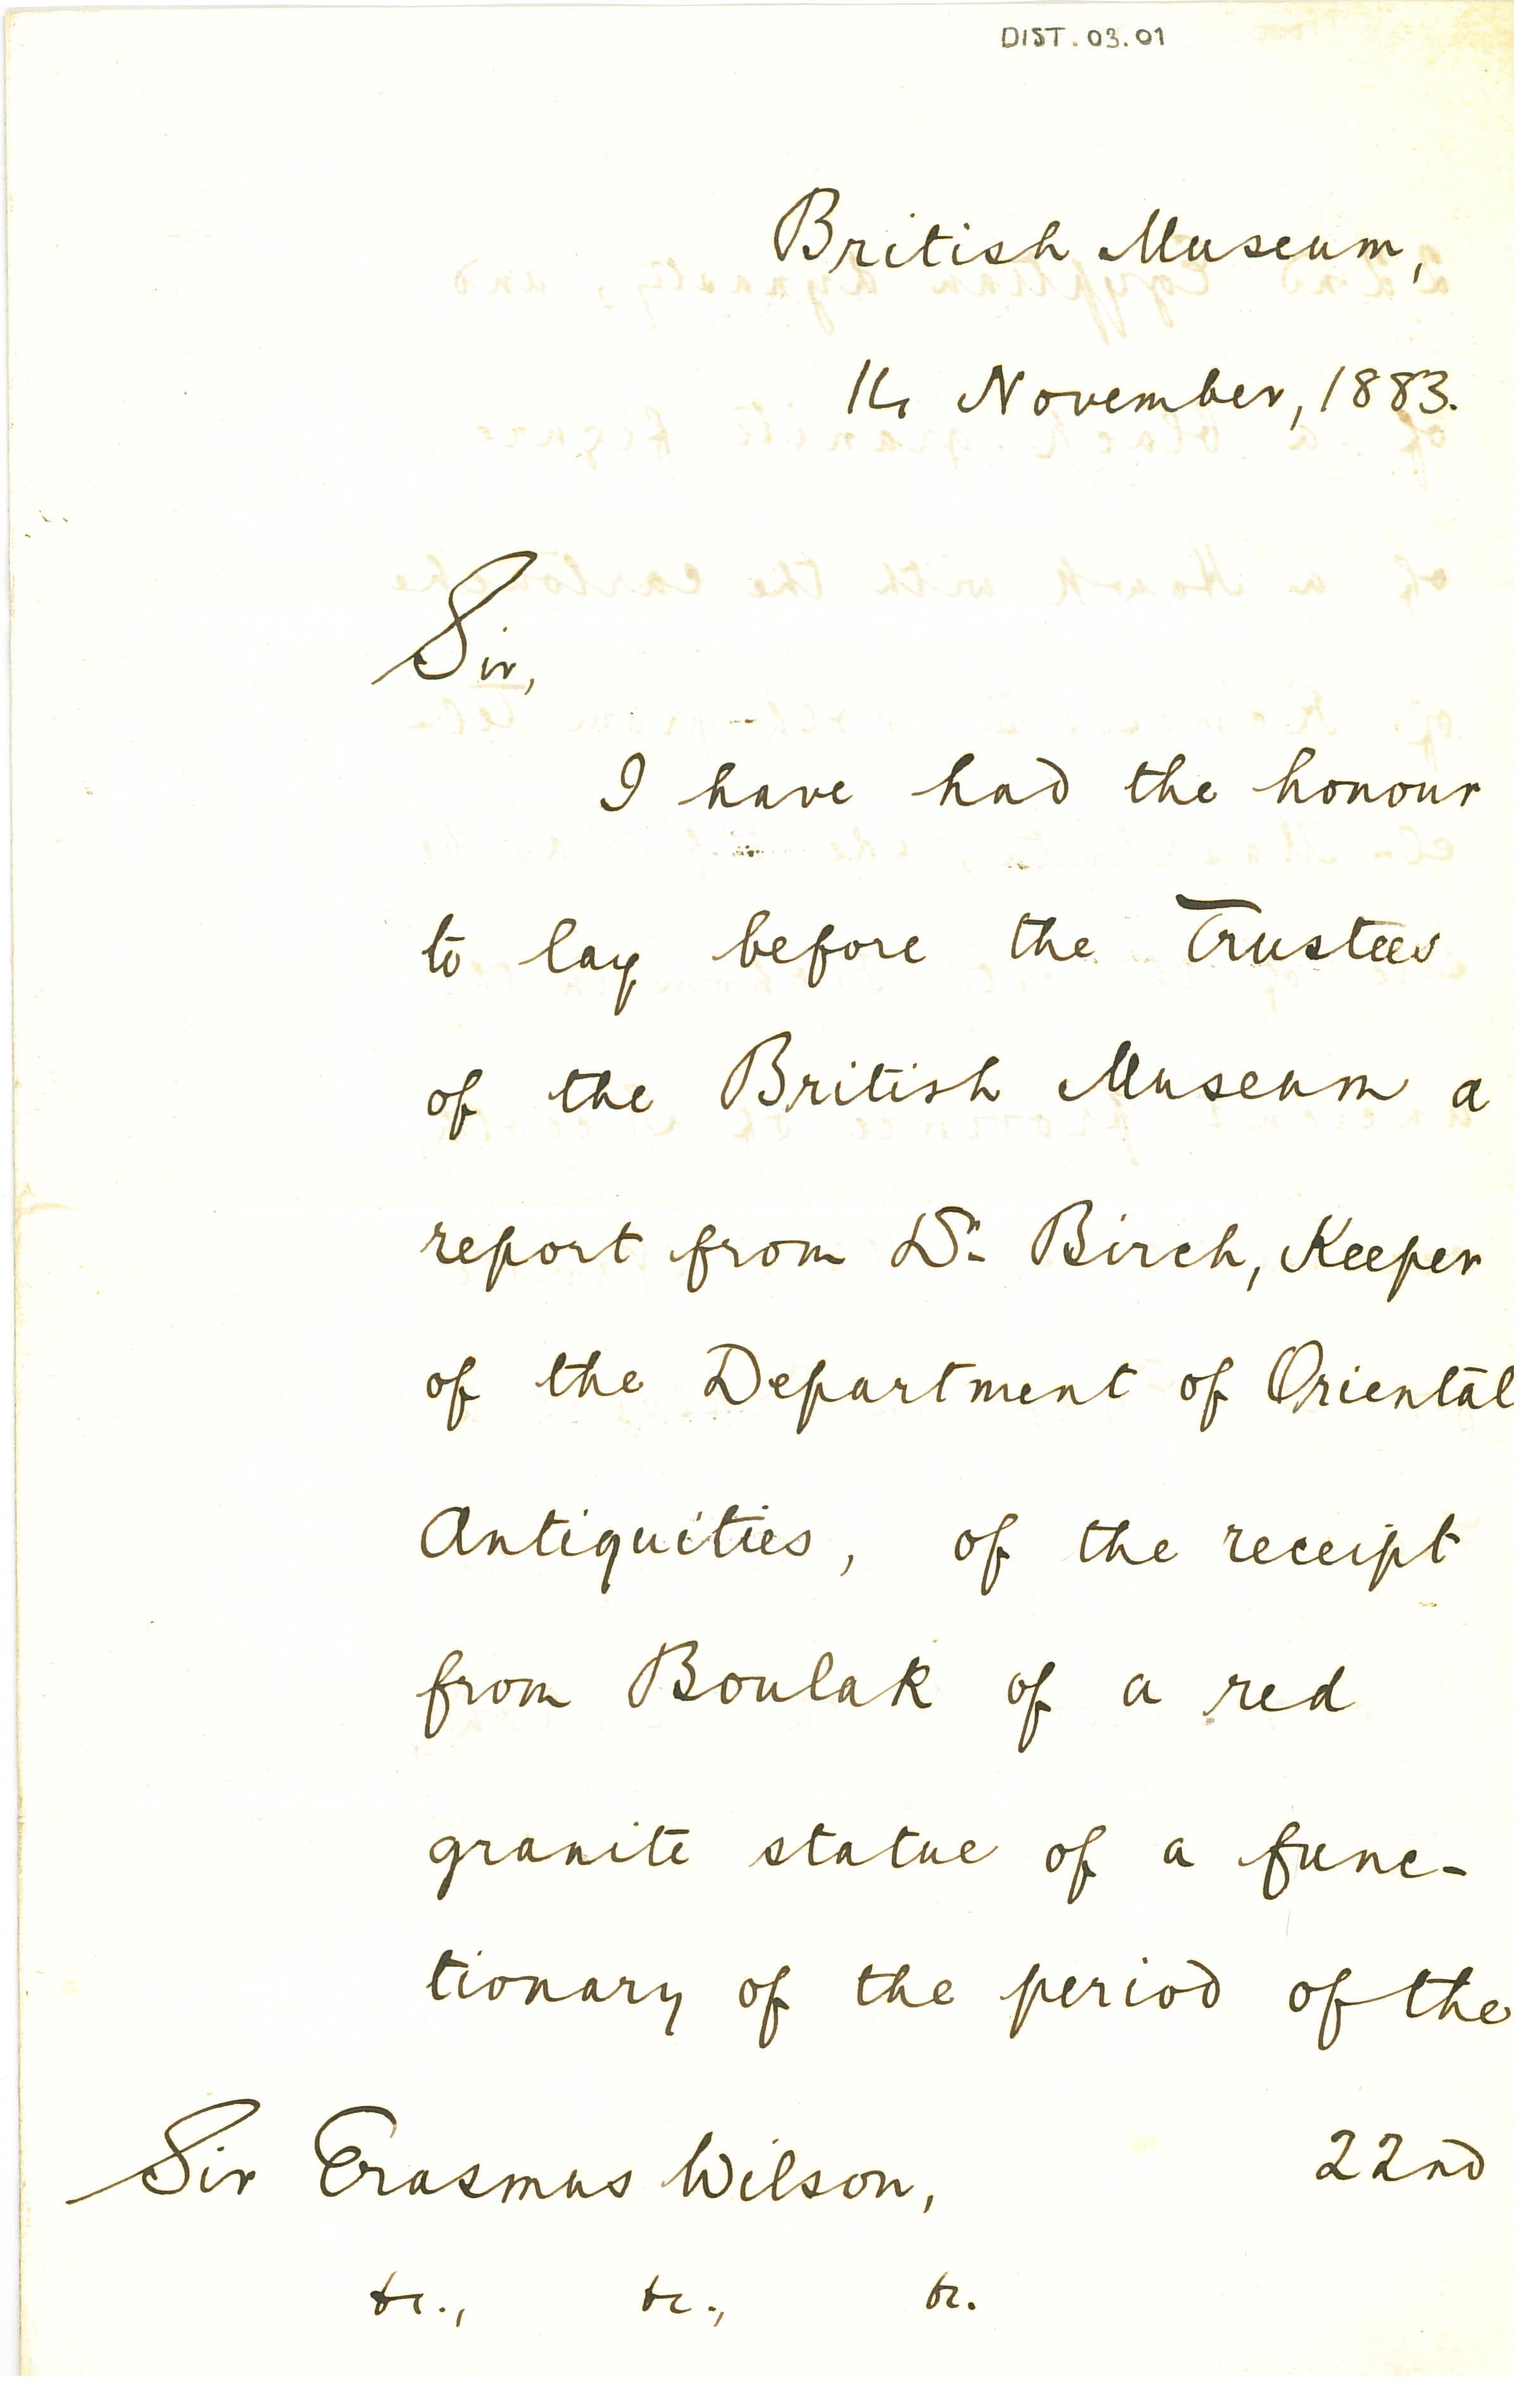 DIST.03.01
British Museum,
November, 1883.
Sir,
I have had the honour
to lay before the Trustees
of the British Museum a
report from Dr. Birch, Keeper
of the Department of Oriental
Antiquities, of the receipt
from Boulak of a red
granite statue of a func-
tionary of the period of the
22nd
Sir Erasmus Wilson,
&c., &c., &c.